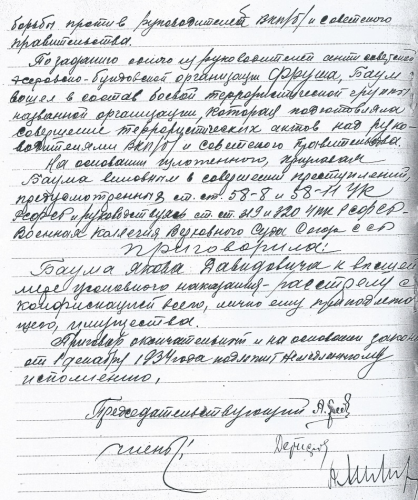 борьбы против руководителей ВКП/б/ и советского
правительства.
По заданию одного из руководителей антисоветской
эсеровско-бундовской организации Фрума, Баум
вошел в состав боевой террористической группы
названной организации, которая подготовляла
совершение террористических актов над руко-
водителями ВКП/б/ и советского правительства.
На основании изложенного, признавая
Баума виновным в совершении преступлений,
предусмотренных ст. ст. 58-8 и 58-11 УК
РСФСР и руководствуясь ст. ст. 319 и 320 УПК РСФСР-
Военная Коллегия Верховного Суда Союза ССР
приговорила:
Баума Якова Давидовича к высшей
мере уголовного наказания - расстрелу с
конфискацией всего, лично ему принадлежа-
щего, имущества.
Приговор окончательный и на основании закона
от 1 декабря 1934 года подлежит немедленному
исполнению.
Председательствующий
члены: